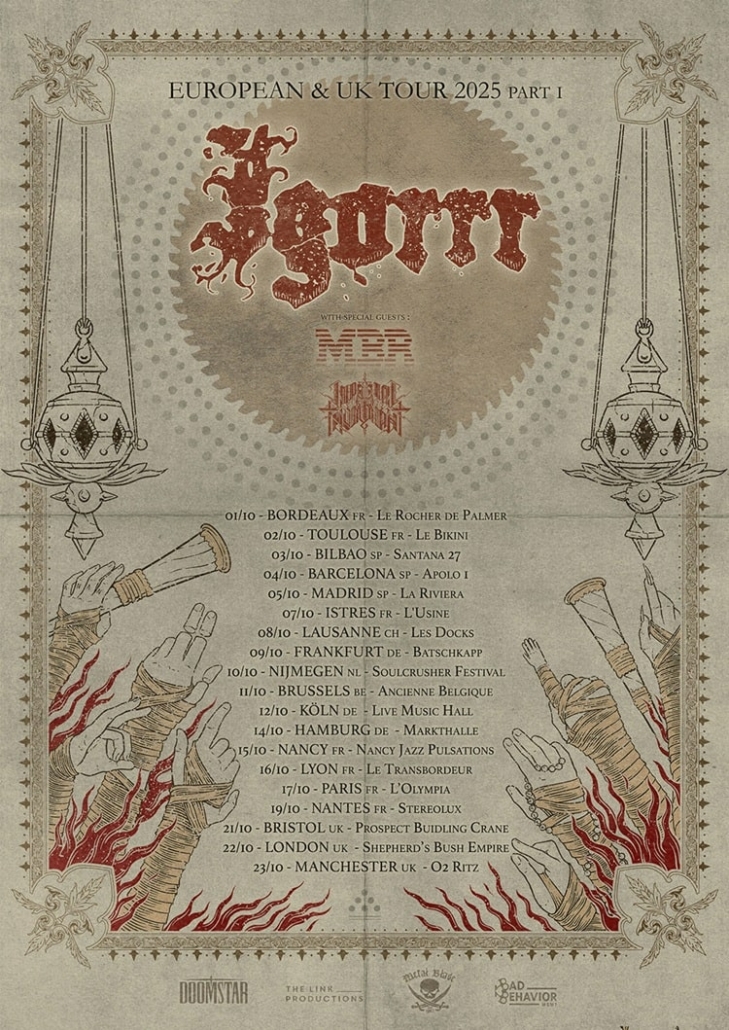 EUROPEAN & UK TOUR 2025 PART I
Igorrr
WITH SPECIAL GUESTS :
MBR
IMPERIAL TRIUMPHANT
01/10 - BORDEAUX FR - LE ROCHER DE PALMER
02/10 - TOULOUSE FR - LE BIKINI
03/10 - BILBAO SP - SANTANA 27
04/10 - BARCELONA SP - APOLO 1
05/10 - MADRID SP - LA RIVIERA
07/10 - ISTRES FR - L'USINE
08/10 - LAUSANNE CH - LES DOCKS
09/10 - FRANKFURT DE - BATSCHKAPP
10/10 - NIJMEGEN NL - SOULCRUSHER FESTIVAL
11/10 - BRUSSELS BE - ANCIENNE BELGIQUE
12/10 - KÖLN DE - LIVE MUSIC HALL
14/10 - HAMBURG DE - MARKTHALLE
15/10 - NANCY FR - NANCY JAZZ PULSATIONS
16/10 - LYON FR - LE TRANSBORDEUR
17/10 - PARIS FR - L'OLYMPIA
19/10 - NANTES FR - STEREOLUX
21/10 - BRISTOL UK - PROSPECT BUIDLING CRANE
22/10 - LONDON UK - SHEPHERD'S BUSH EMPIRE
23/10 - MANCHESTER UK - O2 RITZ
DOOMSTAR
THE LINK
PRODUCTIONS
Metal Blade
BAD
BEHAVIOR